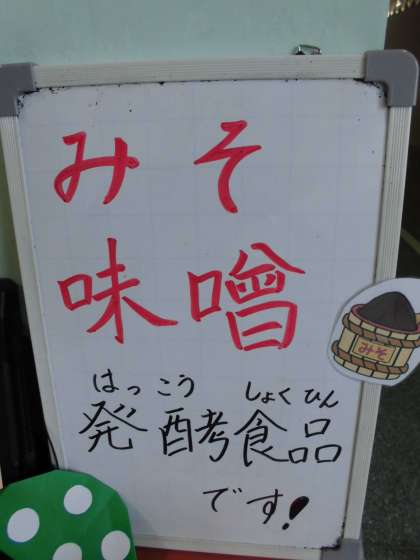 みそ
味噌
はっこう しょくひん
発酵食品
です!
みそ